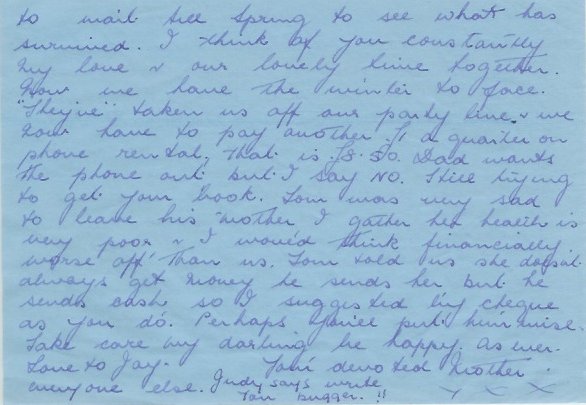 to wait till Spring to see what has
survived. I think of you constantly
my love & our lovely time together.
Now we have the winter to face.
"They've" taken us off our party line & we
now have to pay another £1 a quarter on
phone rental. That is £8.50. Dad wants
the phone out but I say NO. Still trying
to get your book. Tom was very sad
to leave his mother I gather her health is
very poor & I would think financially
worse off than us. Tom told us she doesn't
always get money he sends her but he
sends cash so I suggested by cheque
as you do. Perhaps you'll put him wise.
Take care my darling be happy. As ever
Love to Jay. Your devoted Mother.
everyone else. Judy says write
You bugger.!! x x x